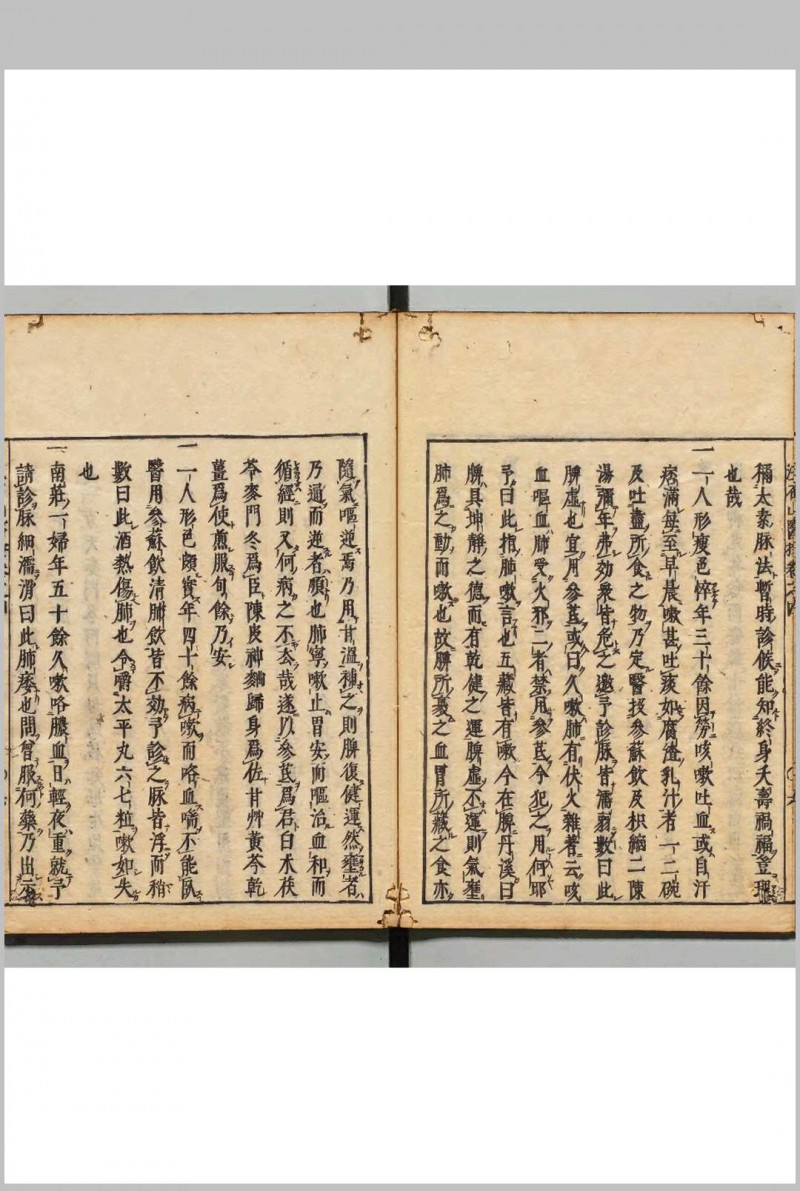 稱太素脉法暫時診候能知終身夭壽禍福豈理
也哉
一一人形瘦色悴年三十餘因勞咳嗽吐血或自汗
痞滿每至早晨嗽甚吐痰如腐渣乳汁者一二碗
及吐盡所食之物乃定醫投參蘇飲及枳縮二陳
湯彌年弗効衆皆危之邀予診脉皆濡弱數曰此
脾虚也宜用參茋或曰久嗽肺有伏火雜著云咳
血嘔血肺受火邪二者禁用參茋今犯之用何耶
予曰此指肺嗽言也五藏皆有嗽今在脾丹溪曰
脾具坤靜之德而有乾健之運脾虚不運則氣壅
肺爲之動而嗽也故脾所裹之血胃所藏之食亦
隨氣嘔逆焉乃用甘温補之則脾復健運然壅者
乃通而逆者順也肺寧嗽止胃安而嘔治血和而
循經則又何病之不去哉遂以參茋爲君白术茯
苓麥門冬爲臣陳皮神麯歸身爲佐甘艸黄芩乾
薑爲使煎服旬餘乃安
一一人形色頗實年四十餘病嗽而咯血喘不能臥
醫用參蘇飲清肺飲皆不効予診之脉皆浮而稍
數曰此酒熱傷肺也令嚼太平丸六七粒嗽如失
也
一南莊一婦年五十餘久嗽咯膿血日輕夜重就予
請診脉細濡滑曰此肺痿也問曾服何藥乃出示